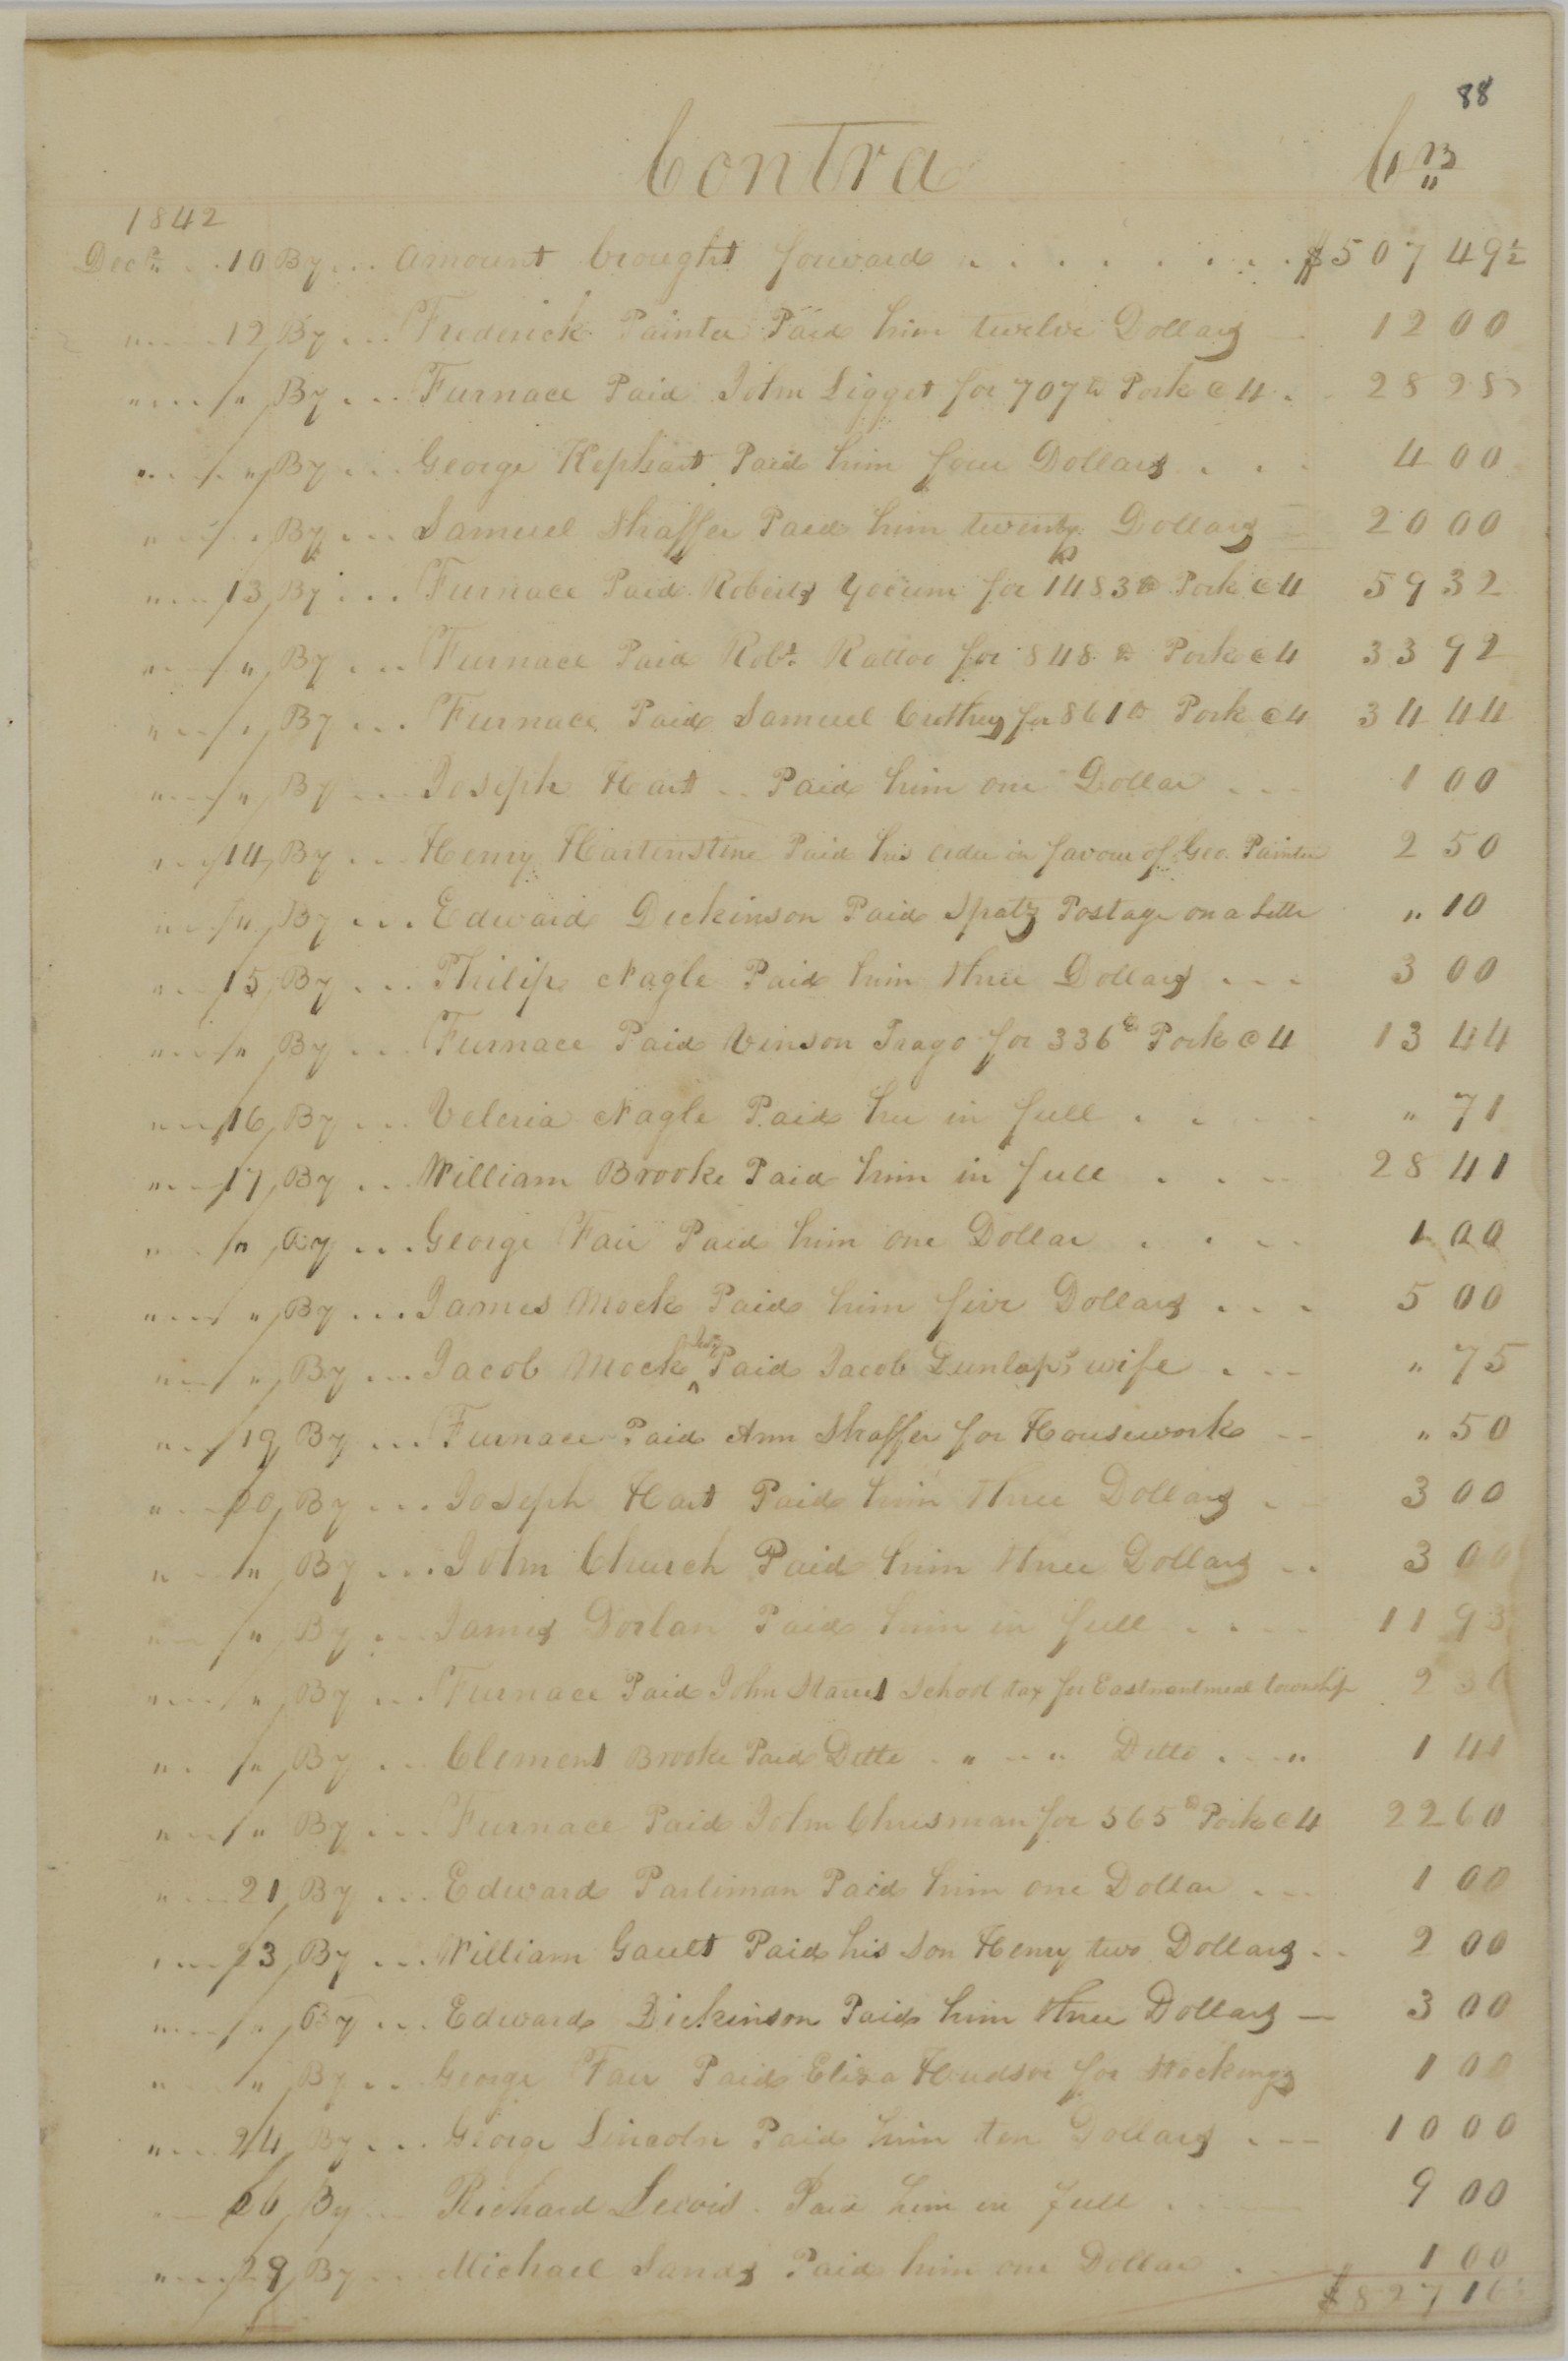 88
Contra Cr
1842
Decr 10 By ... Amount brought forward . . . . . . . . $507 49½
" 12 By ... Frederick Painter Paid him twelve Dollars 12 00
" " By ... Furnace Paid John Ligget for 707 lb Pork @ 4 . 28 28
" " By ... George Kephart Paid him four Dollars . . . 4 00
" " By ... Samuel Shaffer Paid him twenty Dollars 20 00
" 13 By ... Furnace Paid Roberts Yocum for 1483 lb Pork @ 4 59 32
" " By ... Furnace Paid Robt. for 848 lb Pork @ 4 33 92
" " By ... Furnace Paid Samuel for 861 lb Pork @ 4 34 44
" " By ... Joseph Hart .. Paid him one Dollar . . . 1 00
" 14 By ... Henry Hartenstine Paid his order in favour of Geo. Painter 2 50
" " By ... Edward Dickinson Paid Spatz Postage on a Letter " 10
" 15 By ... Philip Nagle Paid him three Dollars . . . 3 00
" " By ... Furnace Paid Vinson Trago for 336 lb Pork @ 4 13 44
" 16 By ... Veleria Nagle Paid her in full . . . . " 71
" 17 By ... William Brooke Paid him in full . . . . 28 41
" " By ... George Fair Paid him one Dollar . . . . 1 00
" " By ... James Mock Paid him five Dollars . . . 5 00
" " By ... Jacob Mock Paid Jacob Dunlap's wife . . . " 75
" 19 By ... Furnace Paid Ann Shaffer for Housework -- " 50
" 20 By ... Joseph Hart Paid him three Dollars . 3 00
" " By ... John Church Paid him three Dollars .. 3 00
" " By ... James Dorlan Paid him in full . . . . 11 93
" " By ... Furnace Paid John School tax for Eastnantmeal township 2
" " By ... Clement Brooke Paid Ditto " " Ditto . . " 1 41
" " By ... Furnace Paid John Chrisman for 565 lb Pork @ 4 22 60
" 21 By ... Edward Parliman Paid him one Dollar . . . 1 00
" 23 By ... William Gault Paid his Son Henry two Dollars .. 2 00
" " By ... Edward Dickinson Paid him three Dollars — 3 00
" " By .. George Fair Paid Eliza for Stockings 1 00
" 24 By ... George Lincoln Paid him ten Dollars . -- 10 00
26 By Richard Lewis . Paid him in full . 9 00
" 29 By ... Michael Sands Paid him one Dollar . . 1 00
$827 16